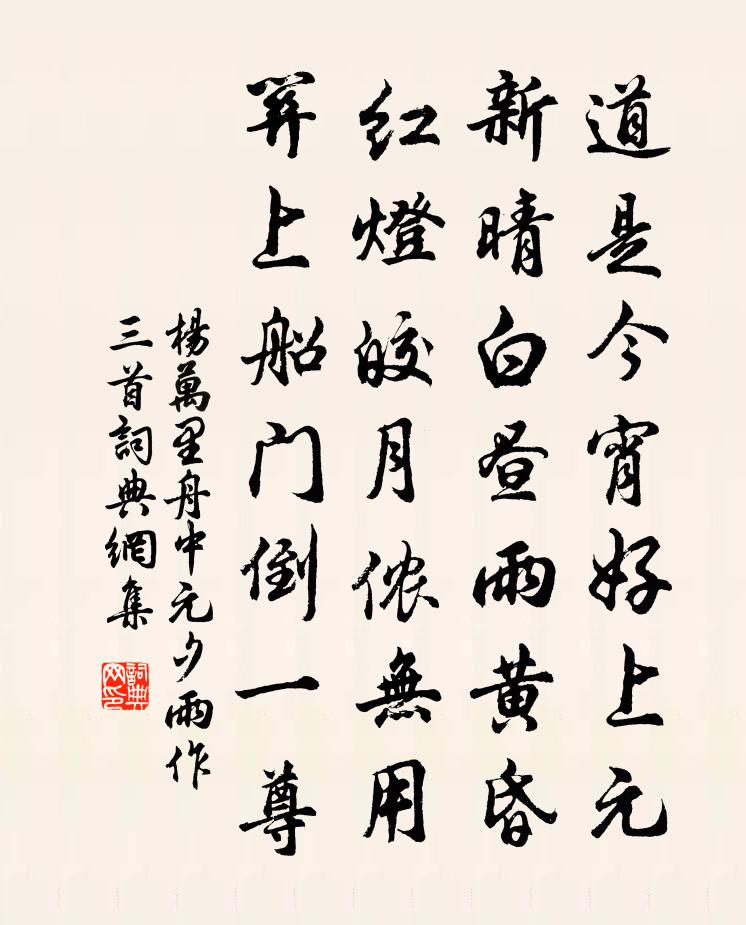 道是今宵好上元
新晴白昼雨黄昏
红燈皎月侬無用
關上船门倒一尊
楊萬里舟中元夕雨作
三首詞典網集
詞典网印